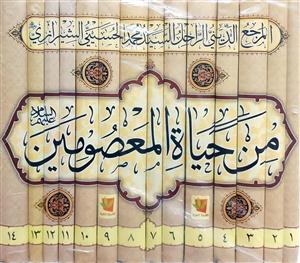 المرجع الديني الراحل السيد محمد الحسيني الشيرازي
من حياة المعصومين
عليهم السلام
١ ٢ ٣ ٤ ٥ ٦ ٧ ٨ ٩ ١٠ ١١ ١٢ ١٣ ١٤